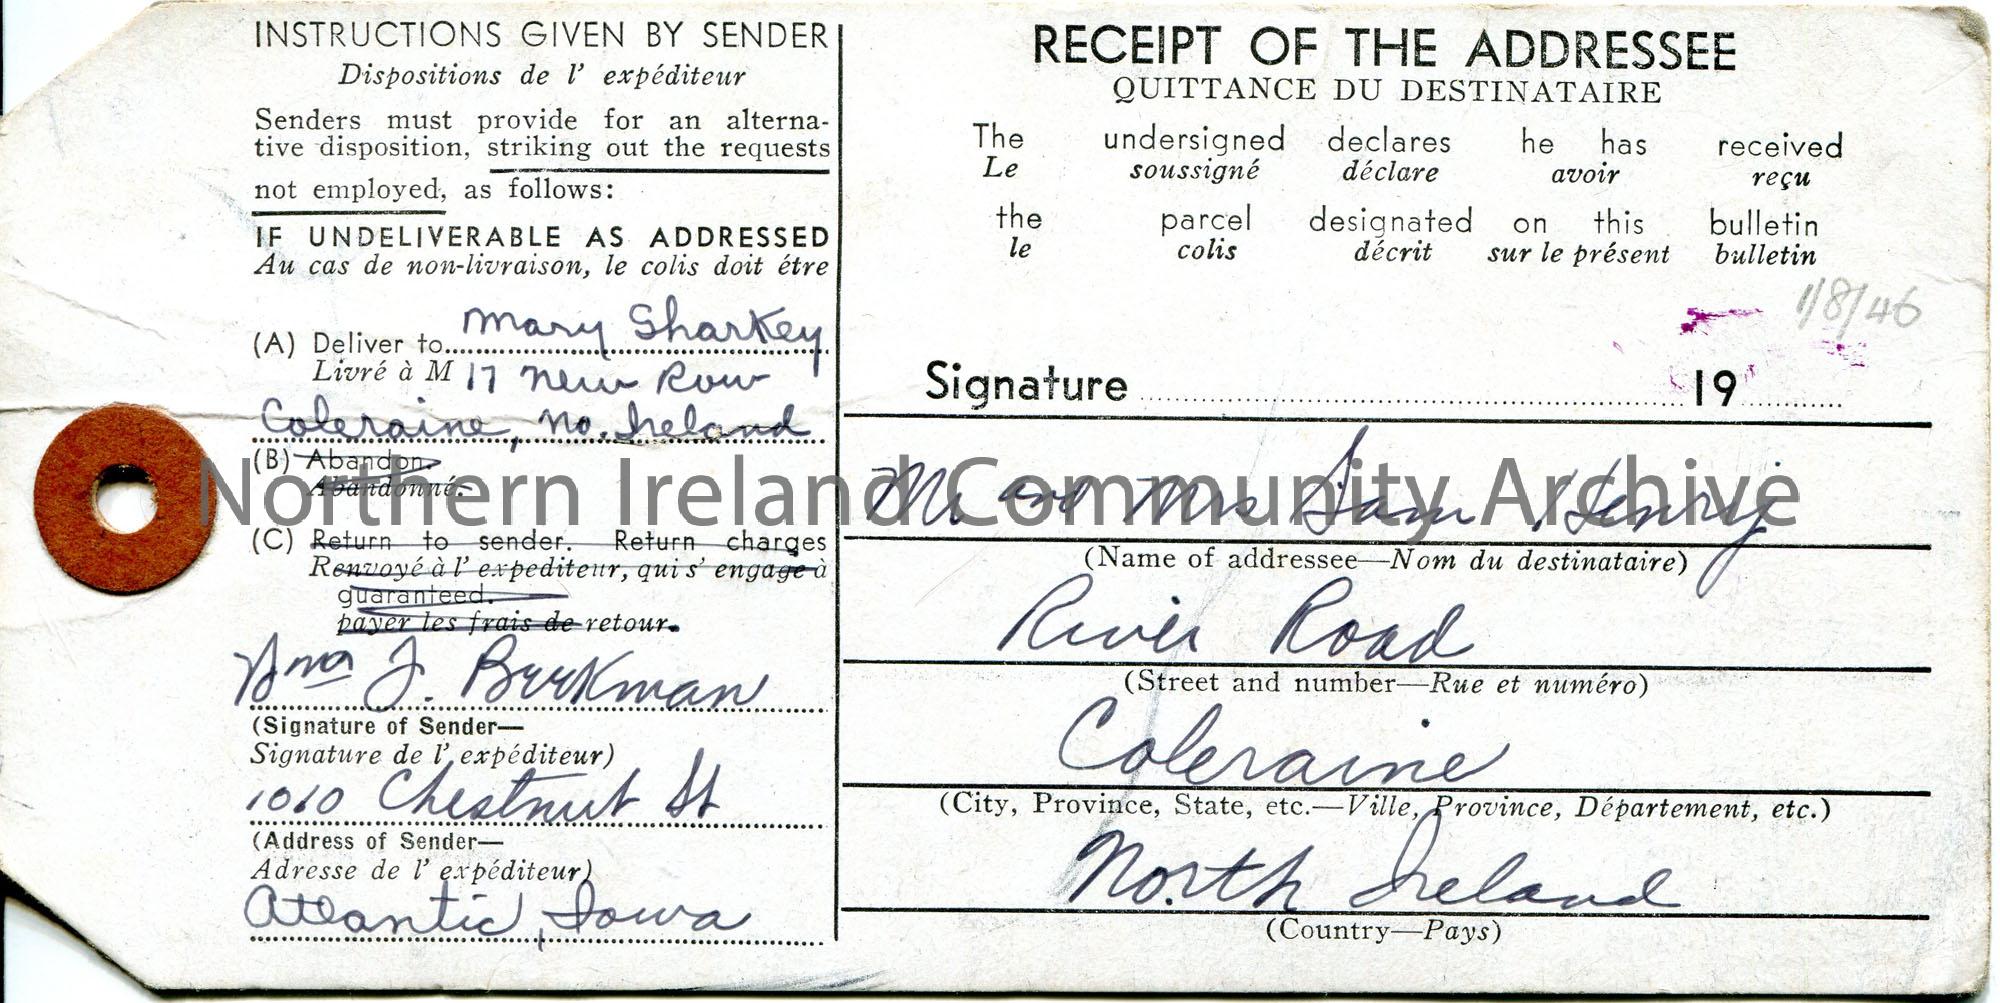 INSTRUCTIONS GIVEN BY SENDER
Dispositions de l' expéditeur
Senders must provide for an alterna-
tive disposition, striking out the requests
not employed, as follows:
IF UNDELIVERABLE AS ADDRESSED
Au cas de non-livraison, le colis doit étre
(A) Deliver to Mary Sharkey
Livré à M 17 New Row
Coleraine, No. Ireland
(B) Abandon.
Abandonné.
(C) Return to sender. Return charges
Renvoyé à l' expediteur, qui s' engage à
guaranteed.
payer les frais de retour.
J. Berkman
(Signature of Sender—
Signature de l' expéditeur)
1010 Chestnut St
(Address of Sender—
Adresse de l' expéditeur)
Atlantic, Iowa
RECEIPT OF THE ADDRESSEE
QUITTANCE DU DESTINATAIRE
The undersigned declares he has received
Le soussigné déclare avoir reçu
the parcel designated on this bulletin
le colis décrit sur le présent bulletin
1/8/46
Signature 19
Mr and Mrs Sam Henry
(Name of addressee—Nom du destinataire)
River Road
(Street and number—Rue et numéro)
Coleraine
(City, Province, State, etc.—Ville, Province, Département, etc.)
North Ireland
(Country—Pays)
Northern Ireland Community Archive